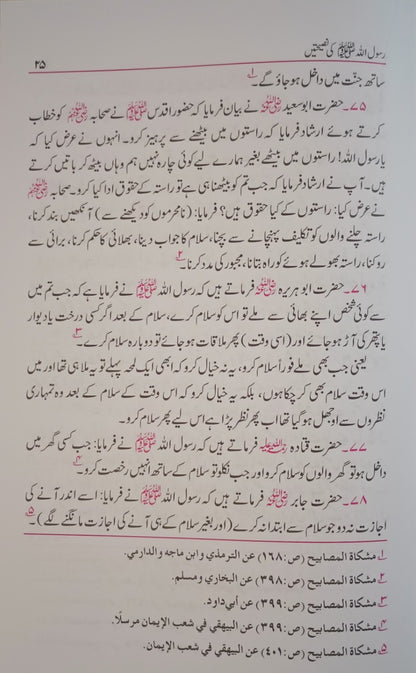 رسول اللہ ﷺ کی نصیحتیں ۲۵
ساتھ جنّت میں داخل ہو جاؤ گے۔ ۱
۷۵۔ حضرت ابو سعید رضی اللہ عنہ نے بیان فرمایا کہ حضور اقدس ﷺ نے صحابہ رضی اللہ عنہم کو خطاب
کرتے ہوئے ارشاد فرمایا کہ راستوں میں بیٹھنے سے پرہیز کرو۔ انہوں نے عرض کیا کہ
یا رسول اللہ! راستوں میں بیٹھے بغیر ہمارے لیے کوئی چارہ نہیں ہم وہاں بیٹھ کر باتیں کرتے
ہیں۔ آپ نے ارشاد فرمایا کہ جب تم کو بیٹھنا ہی ہے تو راستہ کے حقوق ادا کیا کرو۔ صحابہ رضی اللہ عنہم
نے عرض کیا: راستوں کے کیا حقوق ہیں؟ فرمایا: (نامحرموں کو دیکھنے سے) آنکھیں بند کرنا،
راستہ چلنے والوں کو تکلیف پہنچانے سے بچنا، سلام کا جواب دینا، بھلائی کا حکم کرنا، برائی سے
روکنا، راستہ بھولے ہوئے کو راہ بتانا، مجبور کی مدد کرنا۔ ۲
۷۶۔ حضرت ابو ہریرہ رضی اللہ عنہ فرماتے ہیں کہ رسول اللہ ﷺ نے فرمایا ہے کہ جب تم میں
سے کوئی شخص اپنے بھائی سے ملے تو اس کو سلام کرے، سلام کے بعد اگر کسی درخت یا دیوار
یا پتھر کی آڑ ہو جائے اور (اسی وقت) پھر ملاقات ہو جائے تو دوبارہ سلام کرے۔ ۳
یعنی جب بھی ملے فوراً سلام کرو، یہ نہ خیال کرو کہ ابھی ایک لمحہ پہلے تو یہ ملا ہی تھا اور میں
اس وقت سلام بھی کر چکا ہوں، بلکہ یہ خیال کرو کہ اس وقت کے سلام کے بعد وہ تمہاری
نظروں سے اوجھل ہو گیا تھا اب پھر نظر پڑا ہے اس لیے پھر سلام کرو۔
۷۷۔ حضرت قتادہ رحمۃ اللہ علیہ فرماتے ہیں کہ رسول اللہ ﷺ نے فرمایا: جب کسی گھر میں
داخل ہو تو گھر والوں کو سلام کرو اور جب نکلو تو سلام کے ساتھ انہیں رخصت کرو۔ ۴
۷۸۔ حضرت جابر رضی اللہ عنہ فرماتے ہیں کہ رسول اللہ ﷺ نے فرمایا: اسے اندر آنے کی
اجازت نہ دو جو سلام سے ابتدا نہ کرے (اور بغیر سلام کے ہی آنے کی اجازت مانگنے لگے)۔ ۵
۱ مشكاة المصابيح (ص:۱٦۸) عن الترمذي وابن ماجه والدارمي.
۲ مشكاة المصابيح (ص:۳۹۸) عن البخاري ومسلم.
۳ مشكاة المصابيح (ص:۳۹۹) عن أبي داود.
۴ مشكاة المصابيح (ص:۳۹۹) عن البيهقي في شعب الإيمان مرسلًا.
۵ مشكاة المصابيح (ص:۴۰۱) عن البيهقي في شعب الإيمان.